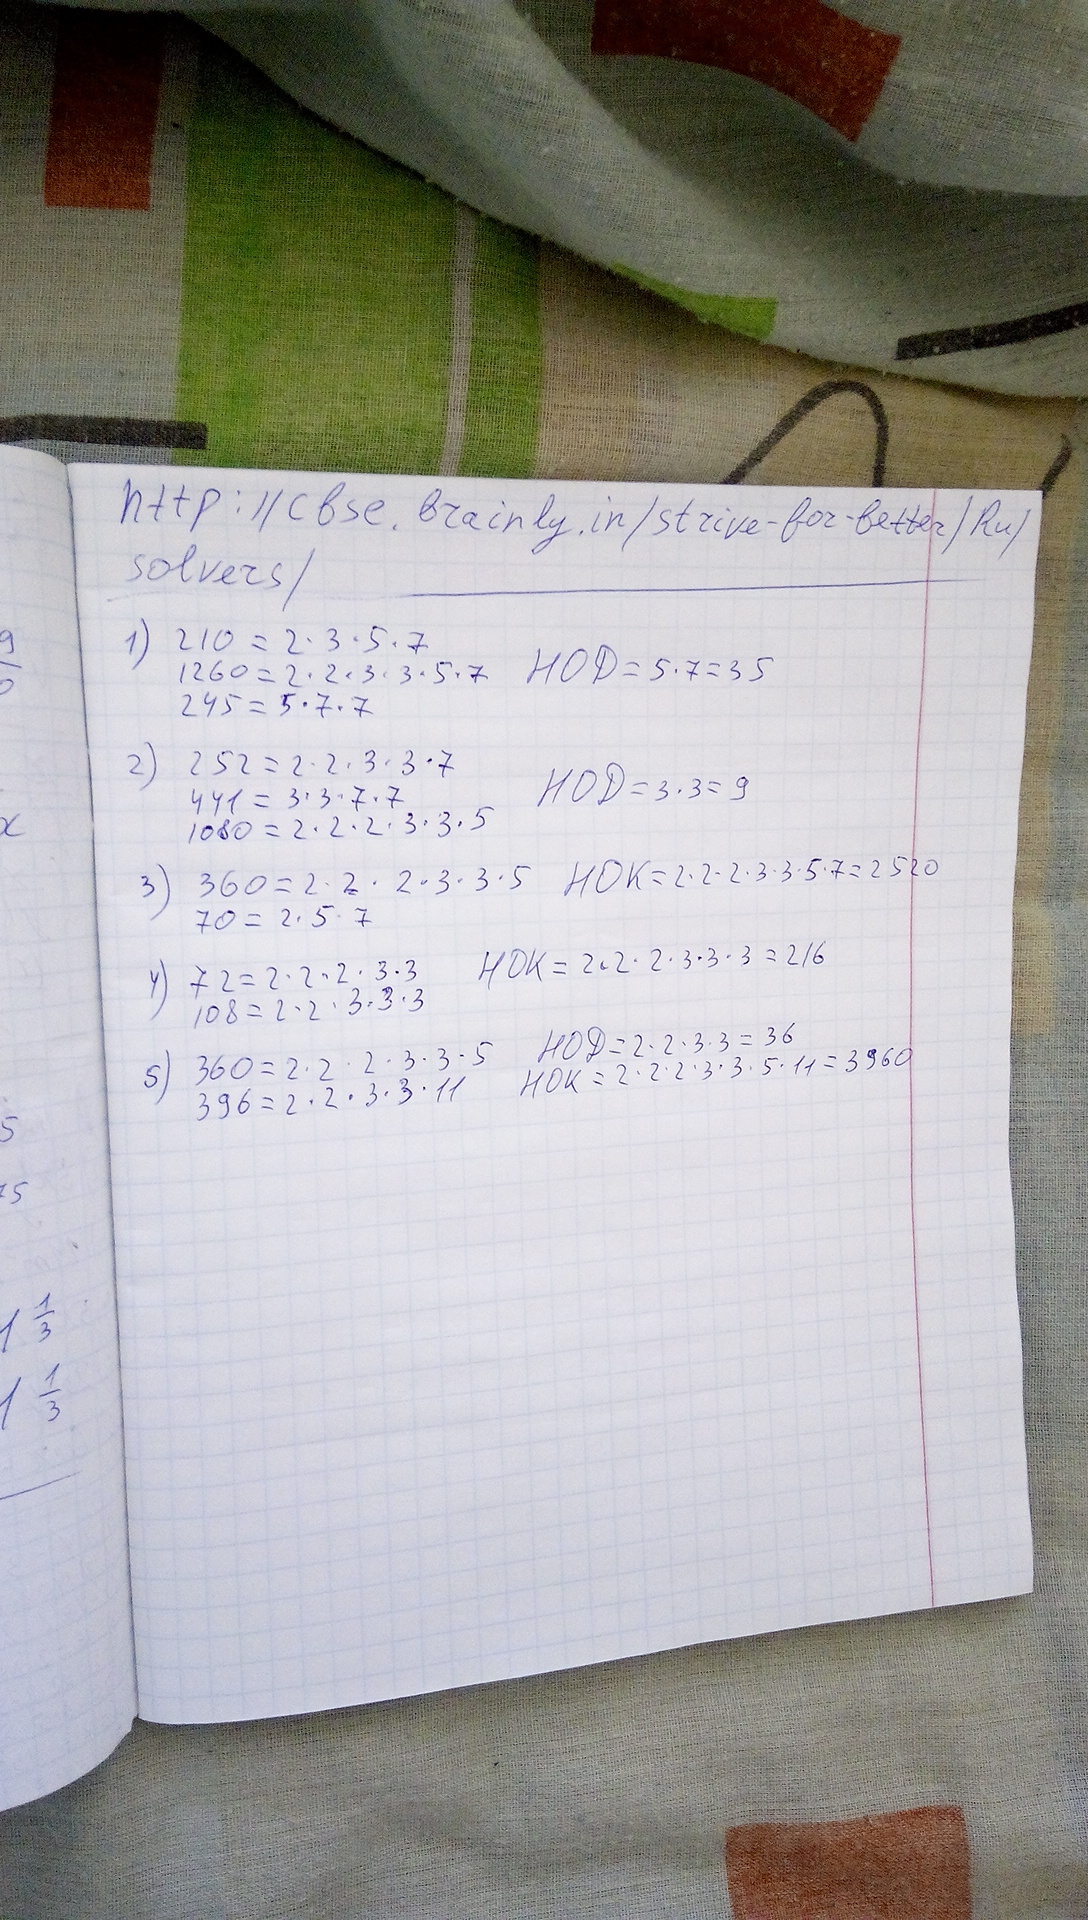 http://cbse.brainly.in/strive-for-better/Ru/
solvers/
1) 210 = 2·3·5·7
1260 = 2·2·3·3·5·7 НОД = 5·7 = 35
245 = 5·7·7
2) 252 = 2·2·3·3·7
441 = 3·3·7·7 НОД = 3·3 = 9
1080 = 2·2·2·3·3·5
3) 360 = 2·2·2·3·3·5 НОК = 2·2·2·3·3·5·7 = 2520
70 = 2·5·7
4) 72 = 2·2·2·3·3 НОК = 2·2·2·3·3·3 = 216
108 = 2·2·3·3·3
5) 360 = 2·2·2·3·3·5 НОД = 2·2·3·3 = 36
396 = 2·2·3·3·11 НОК = 2·2·2·3·3·5·11 = 3960
9
0
x
5
75
1 1/3
1 1/3